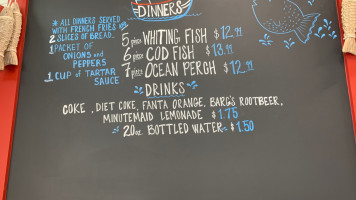 DINNERS
* ALL DINNERS SERVED
WITH FRENCH FRIES
2 SLICES OF BREAD.
1 PACKET OF
ONIONS and
PEPPERS
1 CUP of TARTAR
SAUCE
5 piece WHITING FISH $12.99
6 piece COD FISH $13.99
7 piece OCEAN PERCH $12.99
DRINKS
COKE, DIET COKE, FANTA ORANGE, BARG'S ROOTBEER,
MINUTEMAID LEMONADE $1.75
20oz. BOTTLED WATER $1.50